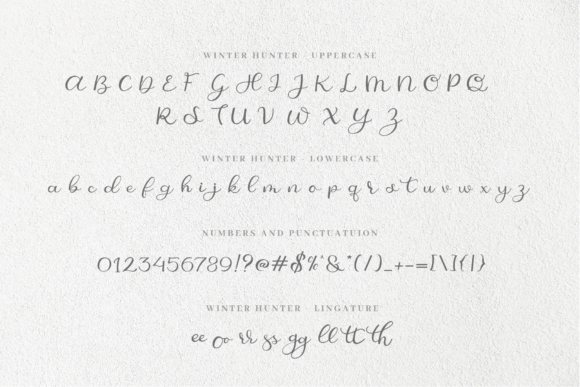 WINTER HUNTER - UPPERCASE
A B C D E F G H I J K L M N O P Q
R S T U V W X Y Z
WINTER HUNTER - LOWERCASE
a b c d e f g h i j k l m n o p q r s t u v w x y z
NUMBERS AND PUNCTUATUION
0123456789!?@#$%^&*(/)_+-=[\]{|}
WINTER HUNTER - LINGATURE
ee oo rr ss gg ll tt th